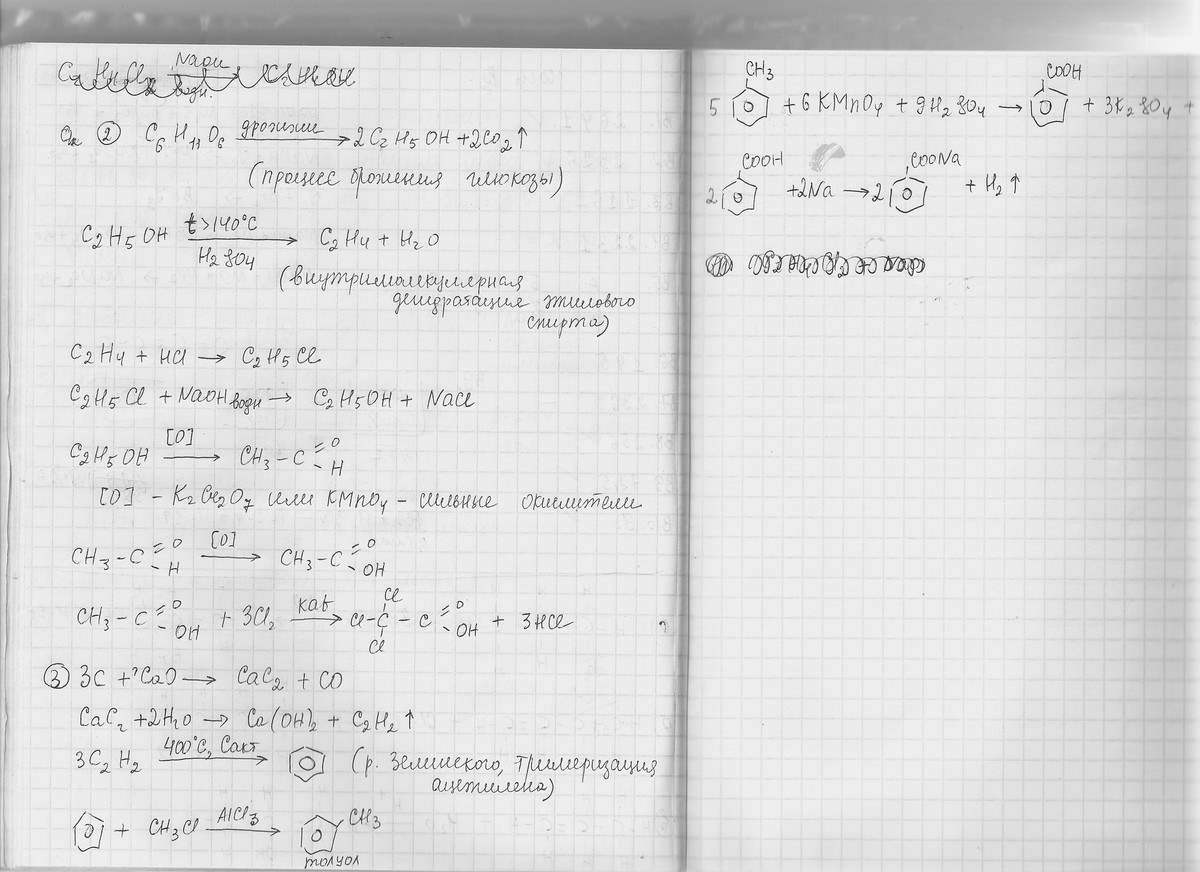 NaOH
водн.
② C6H12O6 дрожжи → 2C2H5OH + 2CO2↑
(процесс брожения глюкозы)
C2H5OH t>140°C H2SO4 → C2H4 + H2O
(внутримолекулярная
дегидратация этилового
спирта)
C2H4 + HCl → C2H5Cl
C2H5Cl + NaOH водн → C2H5OH + NaCl
C2H5OH [O] → CH3-C =O -H
[O] - K2Cr2O7 или KMnO4 - сильные окислители
CH3-C =O -H [O] → CH3-C =O -OH
CH3-C =O -OH + 3Cl2 kat → Cl-C(Cl)(Cl)-C =O -OH + 3HCl
③ 3C + CaO → CaC2 + CO
CaC2 + 2H2O → Ca(OH)2 + C2H2↑
3C2H2 400°C, Cакт → (р. Зелинского, тримеризация
ацетилена)
+ CH3Cl AlCl3 → CH3
толуол
CH3 COOH
5 + 6KMnO4 + 9H2SO4 → + 3K2SO4 +
COOH COONa
2 + 2Na → 2 + H2↑